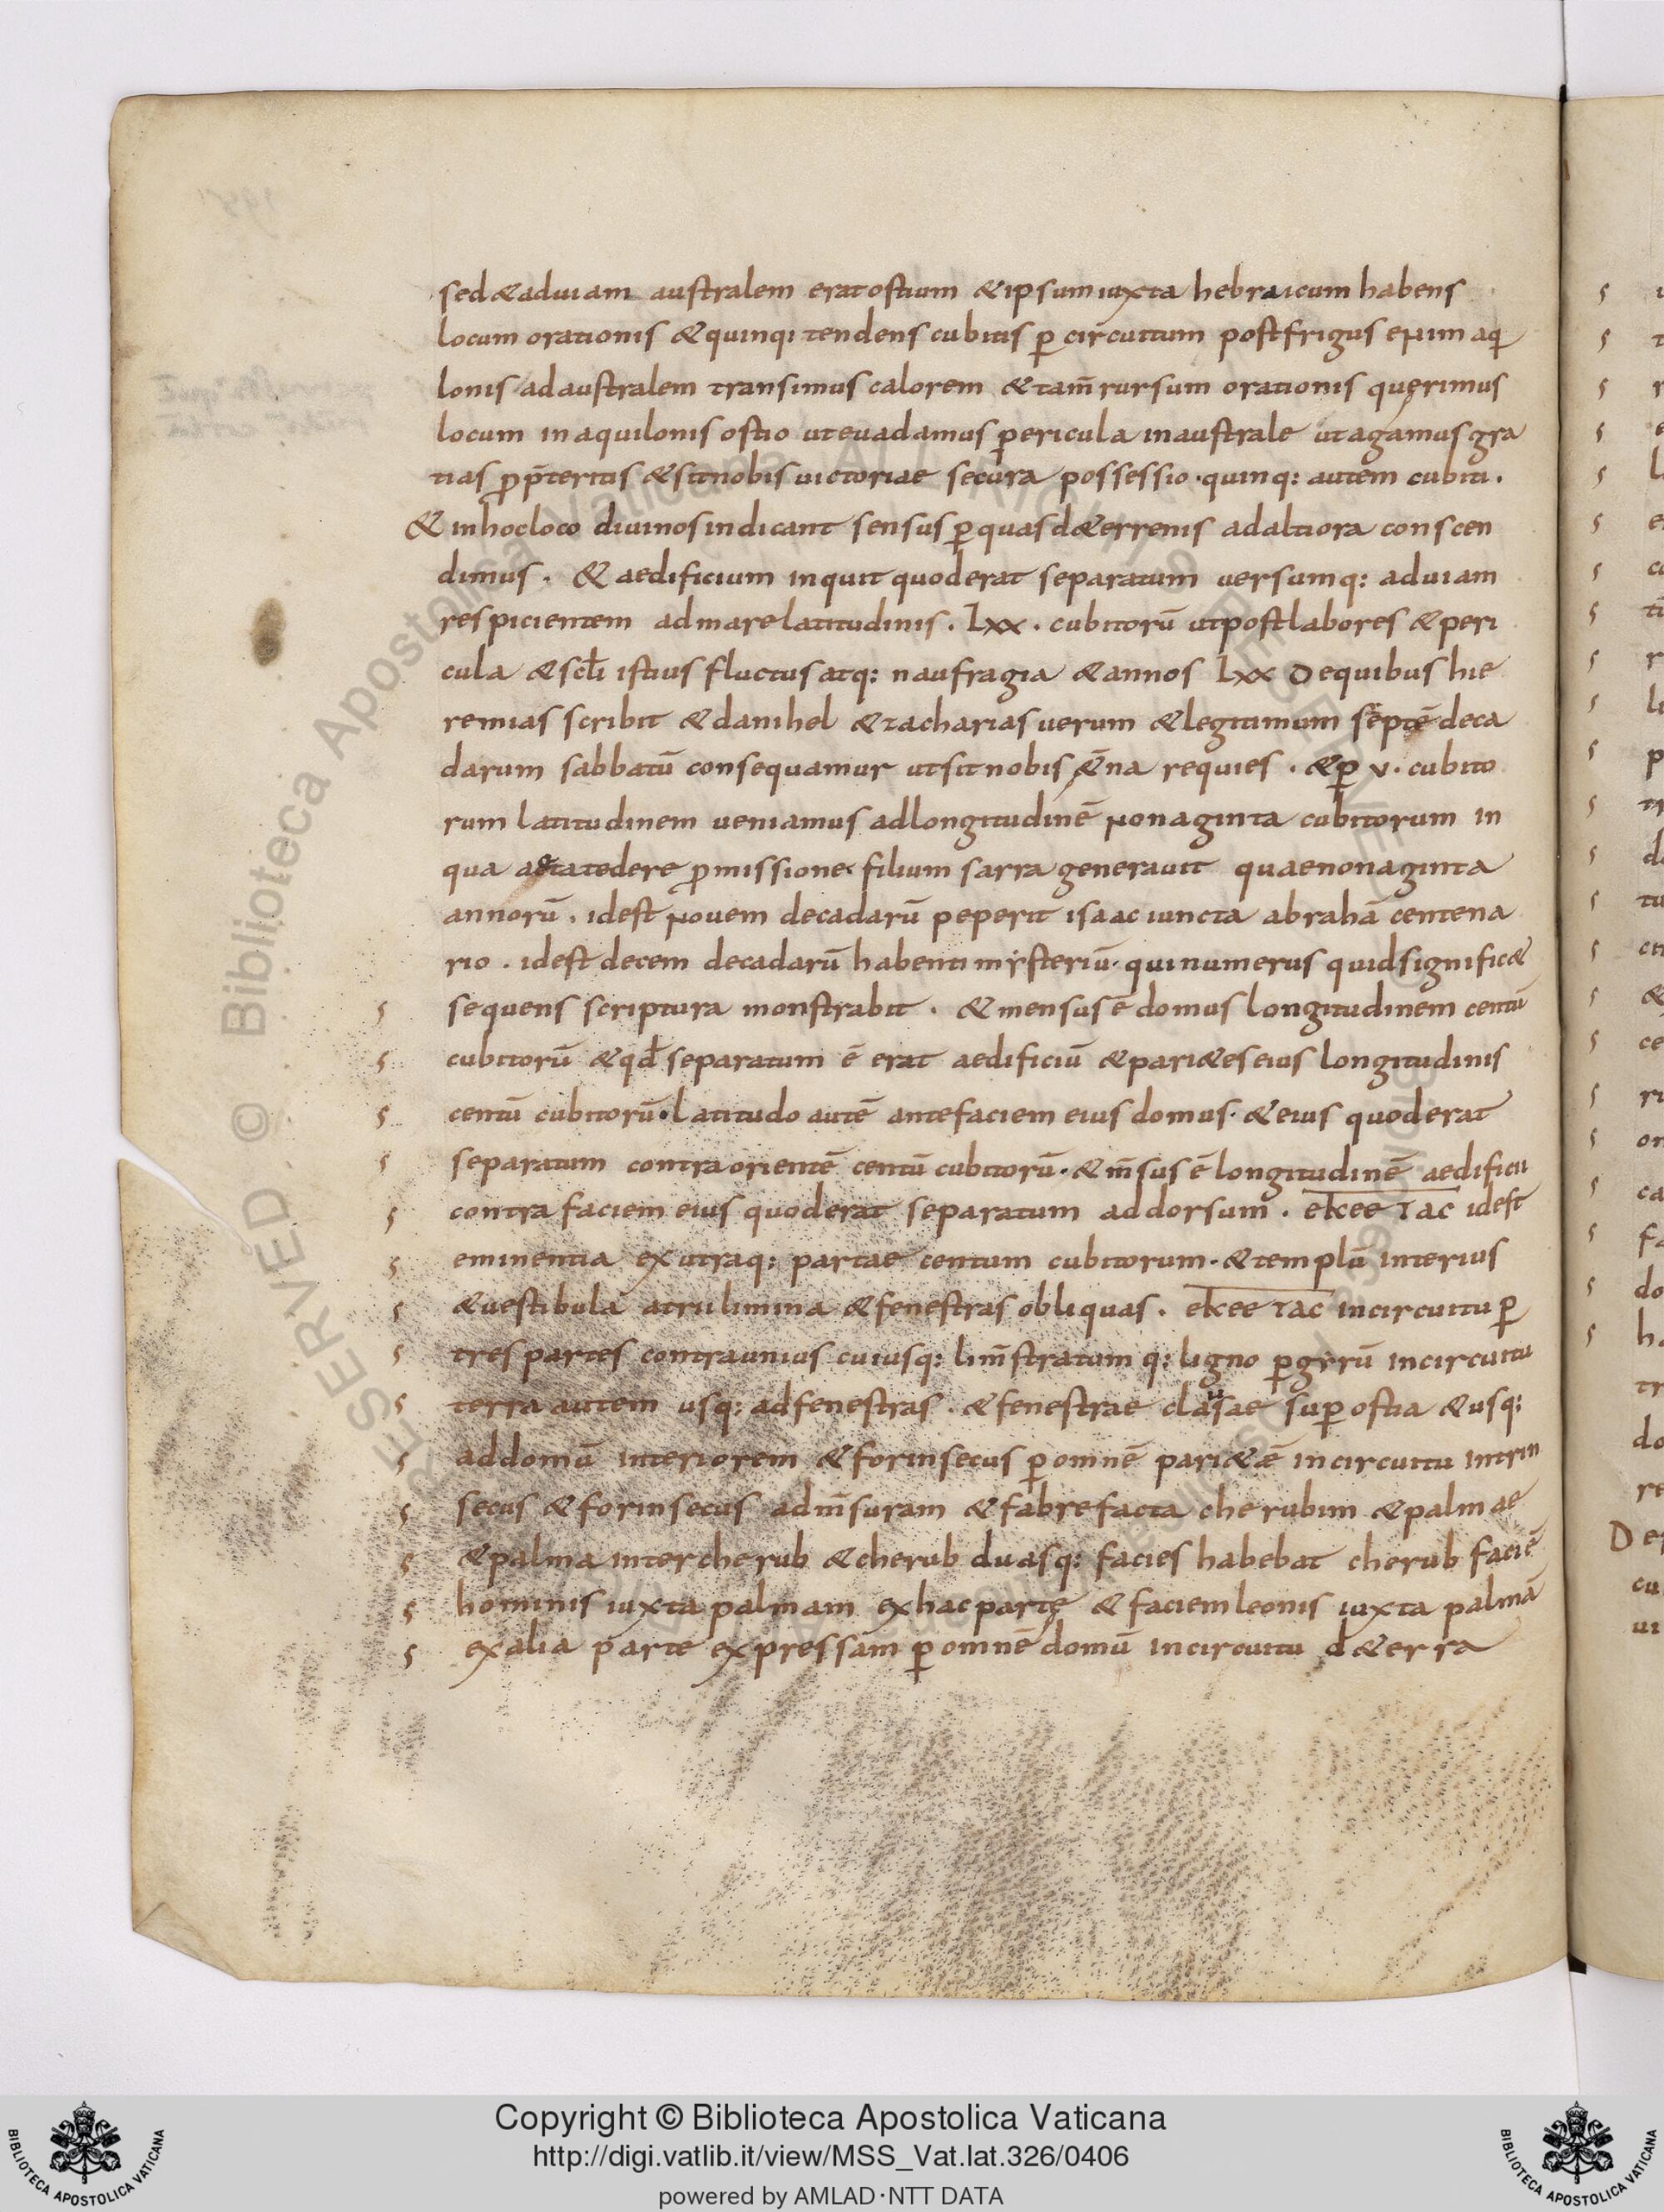 sed & ad uiam australem erat ostium & ipsum iuxta hebraicum habens
locum orationis & quinqi tendens cubitis p̲ circuitum post frigus enim aqi
lonis ad australem transimus calorem & tam̅ rursum orationis querimus
locum in aquilonis ostio ut euadamus pericula in australe ut agamus gra
tias p̲ p̅teritis & sit nobis uictoriae secura possessio · quinq: autem cubiti .
& in hoc loco diuinos indicant sensus p̲ quas d&errenis ad altiora conscen
dimus . & aedificium inquit quod erat separatum uersumq: ad uiam
respicientem ad mare latitudinis . Lxx . cubitorū ut post labores & peri
cula & scl̄i istius fluctus atq: naufragia & annos Lxx De quibus hie
remias scribit & danihel & zacharias uerum & legitimum septē deca
darum sabbatū consequamur ut sit nobis &̄na requies . & p̲ v . cubito
rum latitudinem ueniamus ad longitudinē nonaginta cubitorum in
qua filium sarra generauit quae nonaginta
annorū . idest nouem decadarū peperit isaac iuncta abrahā centena
rio . idest decem decadarū habenti mẏsteriū · qui numerus quid signific&
sequens scriptura monstrabit . & mensus ē domus longitudinem centū
cubitorū & qd̄ separatum ē erat aedificiū & pari&es eius longitudinis
centū cubitorū · latitudo autē ante faciem eius domus · & eius quod erat
separatum contra orientē centū cubitorū · & m̅sus ē longitudinē aedificii
contra faciem eius quod erat separatum ad dorsum . ekee τac idest
eminentia ex utraq: partae centum cubitorum · & templū interius
& uestibula atrii limina & fenestras obliquas . ekee τac in circuitu p̲
tres partes contra unius cuiusq: lim̅ stratum q: ligno p̲ gẏrū in circuitu
terra autem usq: ad fenestras . & fenestrae clausae sup̲ ostia & usq:
ad domū interiorem & forinsecus p̲ omnē pari&ē in circuitu intrin
secus & forinsecus ad m̅suram & fabrefacta cherubim & palmae
& palma inter cherub & cherub duasq: facies habebat cherub faciē
hominis iuxta palmam ex hac parte & faciem leonis iuxta palmā
ex alia parte expressam p̲ omnē domū in circuitu d&erra
BIBLIOTECA APOSTOLICA VATICANA
Copyright © Biblioteca Apostolica Vaticana
http://digi.vatlib.it/view/MSS_Vat.lat.326/0406
powered by AMLAD·NTT DATA
BIBLIOTECA APOSTOLICA VATICANA